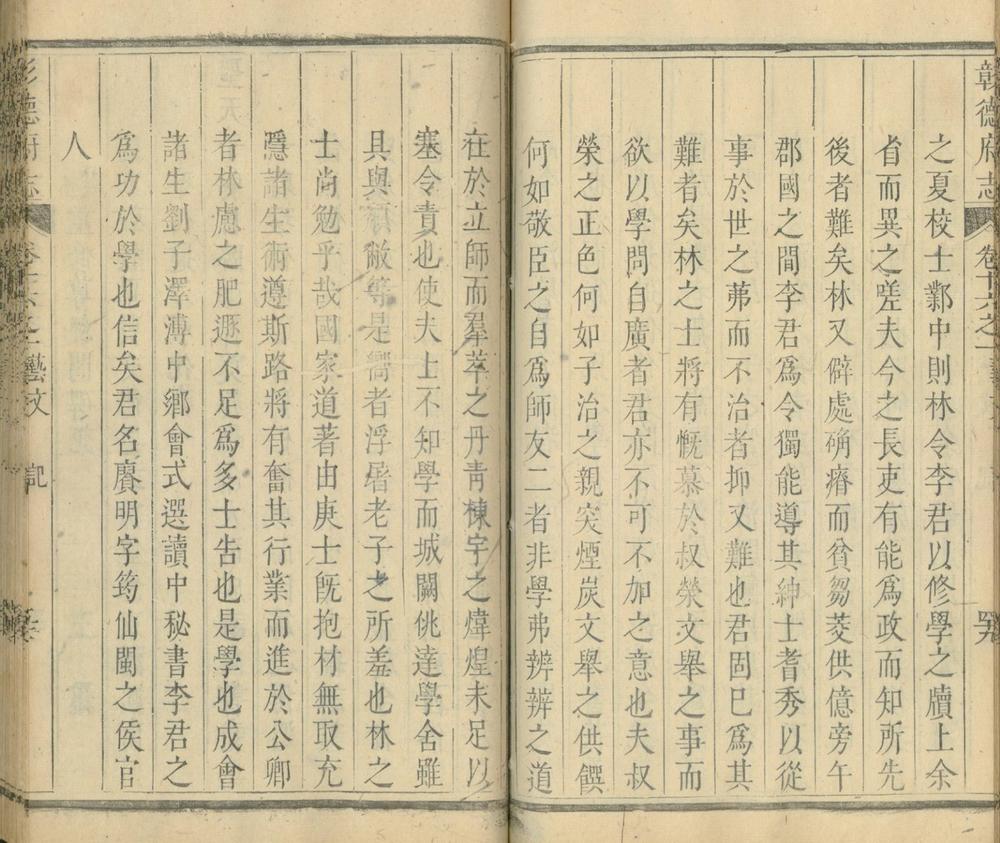 彰德府志 卷十六之一
之夏校士鄴中則林令李君以修學之牘上余
省而異之嗟夫今之長吏有能爲政而知所先
後者難矣林又僻處磽瘠而貧芻茭供億旁午
郡國之間李君爲令獨能導其紳士耆秀以從
事於世之茀而不治者抑又難也君固已爲其
難者矣林之士將有慨慕於叔榮文舉之事而
欲以學問自廣者君亦不可不加之意也夫叔
榮之正色何如子治之親突煙炭文舉之供饌
何如敬臣之自爲師友二者非學弗辨辨之道
在於立師而羣萃之丹青棟宇之煒煌未足以
塞令責也使夫上不知學而城闕佻達學舍雖
具與頹敝等是嚮者浮屠老子之所羞也林之
士尚勉乎哉國家道著由庚士旣抱材無取充
隱諸生術遵斯路將有奮其行業而進於公卿
者林慮之肥遯不足爲多士告也是學也成會
諸生劉子澤溥中鄉會式選讀中秘書李君之
爲功於學也信矣君名賡明字筠仙閩之侯官
人
彰德府志 藝文 記